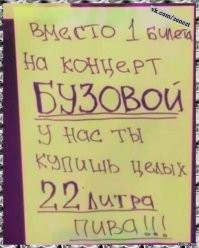 vk.com/zenext
Вместо 1 билета
на концерт
БУЗОВОЙ
у нас ты
купишь целых
22 литра
пива!!!